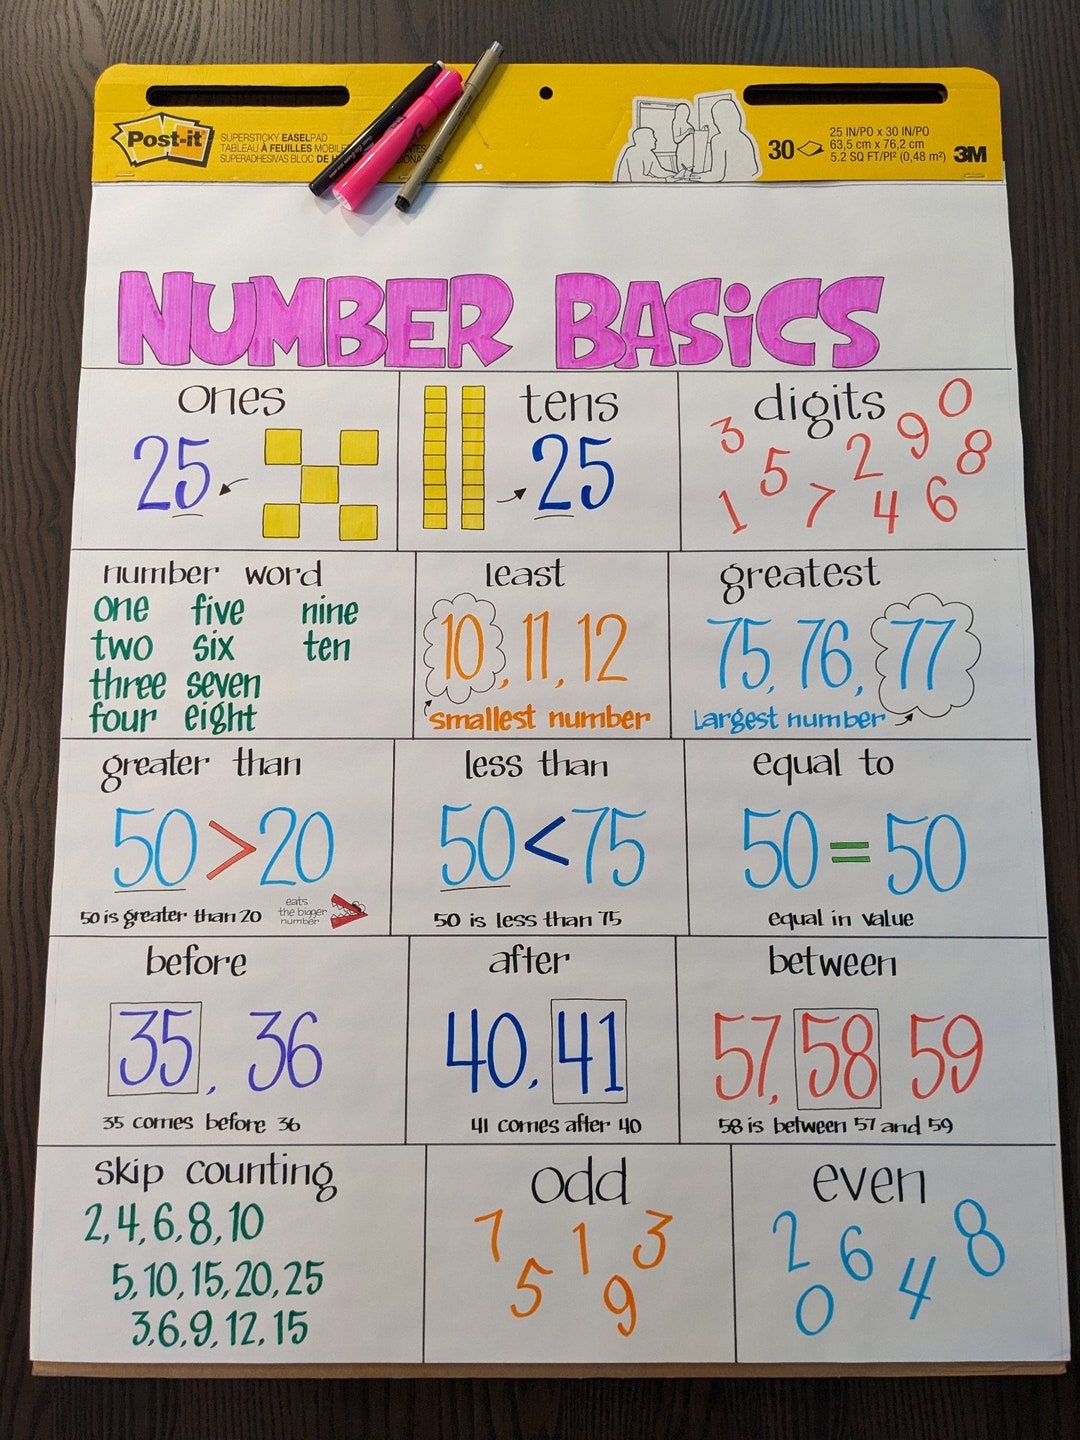 Post-it
SUPERSTICKY EASELPAD
TABLEAU À FEUILLES MOBILE
SUPERADHESIVAS BLOC DE
30
25 IN/PO x 30 IN/PO
63,5 cm x 76,2 cm
5.2 SQ FT/PI² (0,48 m²)
3M
NUMBER BASiCS
ones
25
tens
25
digits
3 5 2 9 0 8
1 7 4 6
number word
one five nine
two six ten
three seven
four eight
least
10, 11, 12
smallest number
greatest
75, 76, 77
Largest number
greater than
50 > 20
50 is greater than 20
eats
the bigger
number
less than
50 < 75
50 is less than 75
equal to
50 = 50
equal in value
before
35, 36
35 comes before 36
after
40, 41
41 comes after 40
between
57, 58 59
58 is between 57 and 59
skip counting
2, 4, 6, 8, 10
5, 10, 15, 20, 25
3, 6, 9, 12, 15
odd
7 1 3
5 9
even
2 6 8
0 4